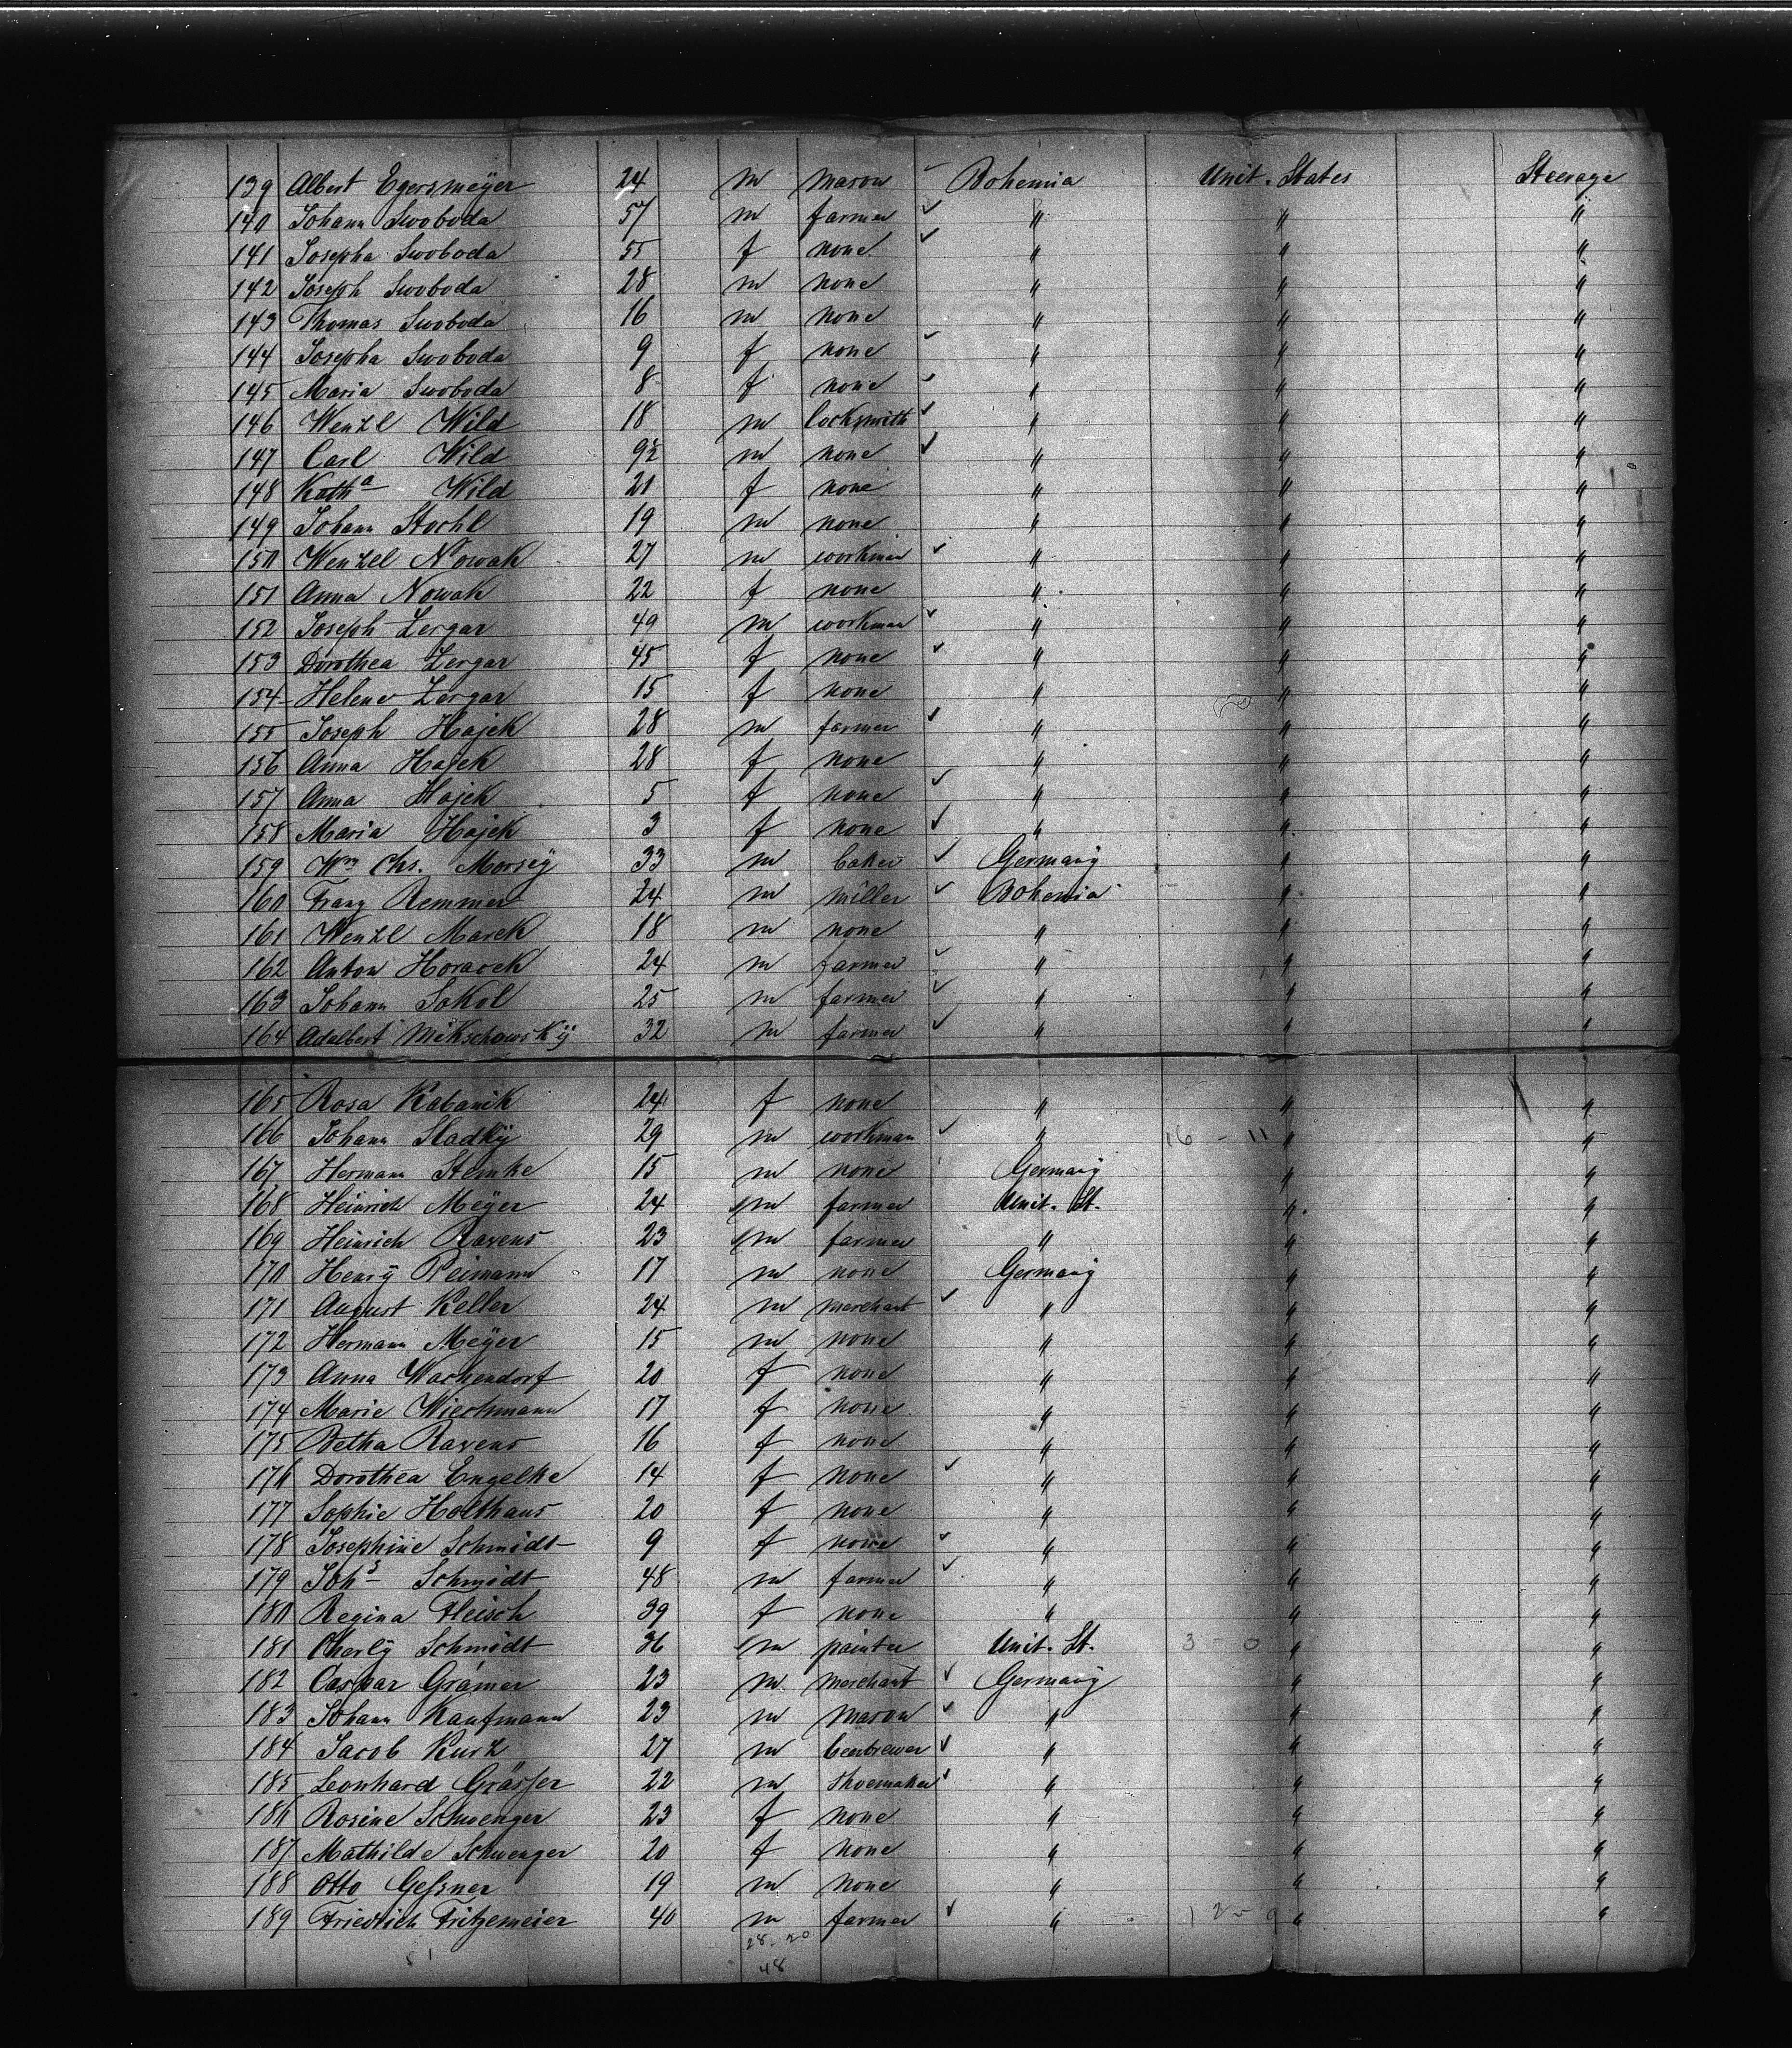 139 Albert Egersmeÿer 24 m mason Bohemia Unit. States Steerage
140 Johann Swoboda 57 m farmer " " "
141 Josepha Swoboda 55 f none " " "
142 Joseph Swoboda 28 m none " " "
143 Thomas Swoboda 16 m none " " "
144 Josepha Swoboda 9 f none " " "
145 Maria Swoboda 8 f none " " "
146 Wenzl Wild 18 m locksmith " " "
147 Carl Wild 9½ m none " " "
148 Kath^a Wild 21 f none " " "
149 Johann Stochl 19 m none " " "
150 Wenzel Nowak 27 m workman " " "
151 Anna Nowak 22 f none " " "
152 Joseph Zergar 49 m workman " " "
153 Dorothea Zergar 45 f none " " "
154 Helene Zergar 15 f none " " "
155 Joseph Hajek 28 m farmer " " "
156 Anna Hajek 28 f none " " "
157 Anna Hajek 5 f none " " "
158 Maria Hajek 3 f none " " "
159 Wm Chs. Morseÿ 33 m baker Germanÿ " "
160 Franz Remmer 24 m miller Bohemia " "
161 Wenzl Marek 18 m none " " "
162 Anton Horacek 24 m farmer " " "
163 Johann Sokol 25 m farmer " " "
164 Adalbert Mikschowskÿ 32 m farmer " " "
165 Rosa Kabanik 24 f none " " "
166 Johann Sladkÿ 29 m workman " 16 - 11 " "
167 Hermann Stemke 15 m none Germanÿ " "
168 Heinrich Meÿer 24 m farmer Unit. St. " "
169 Heinrich Ravens 23 m farmer " " "
170 Henrÿ Reimann 17 m none Germanÿ " "
171 August Keller 24 m merchant " " "
172 Hermann Meÿer 15 m none " " "
173 Anna Wachendorf 20 f none " " "
174 Marie Wiechmann 17 f none " " "
175 Betha Ravens 16 f none " " "
176 Dorothea Engelke 14 f none " " "
177 Sophie Holthaus 20 f none " " "
178 Josephine Schmidt 9 f none " " "
179 Joh^s Schmidt 48 m farmer " " "
180 Regina Fleisch 39 f none " " "
181 Cherlÿ Schmidt 36 m painter Unit. St. 3 - 0 " "
182 Caspar Grämer 23 m merchant Germanÿ " "
183 Johann Kaufmann 23 m mason " " "
184 Jacob Kurz 27 m beerbrewer " " "
185 Leonhard Grässer 22 m shoemaker " " "
186 Rosine Schwenger 23 f none " " "
187 Mathilde Schwenger 20 f none " " "
188 Otto Gessner 19 m none " " "
189 Friedrich Fritzemeier 40 m farmer " 12 - 9 " "
28. 20
51 48